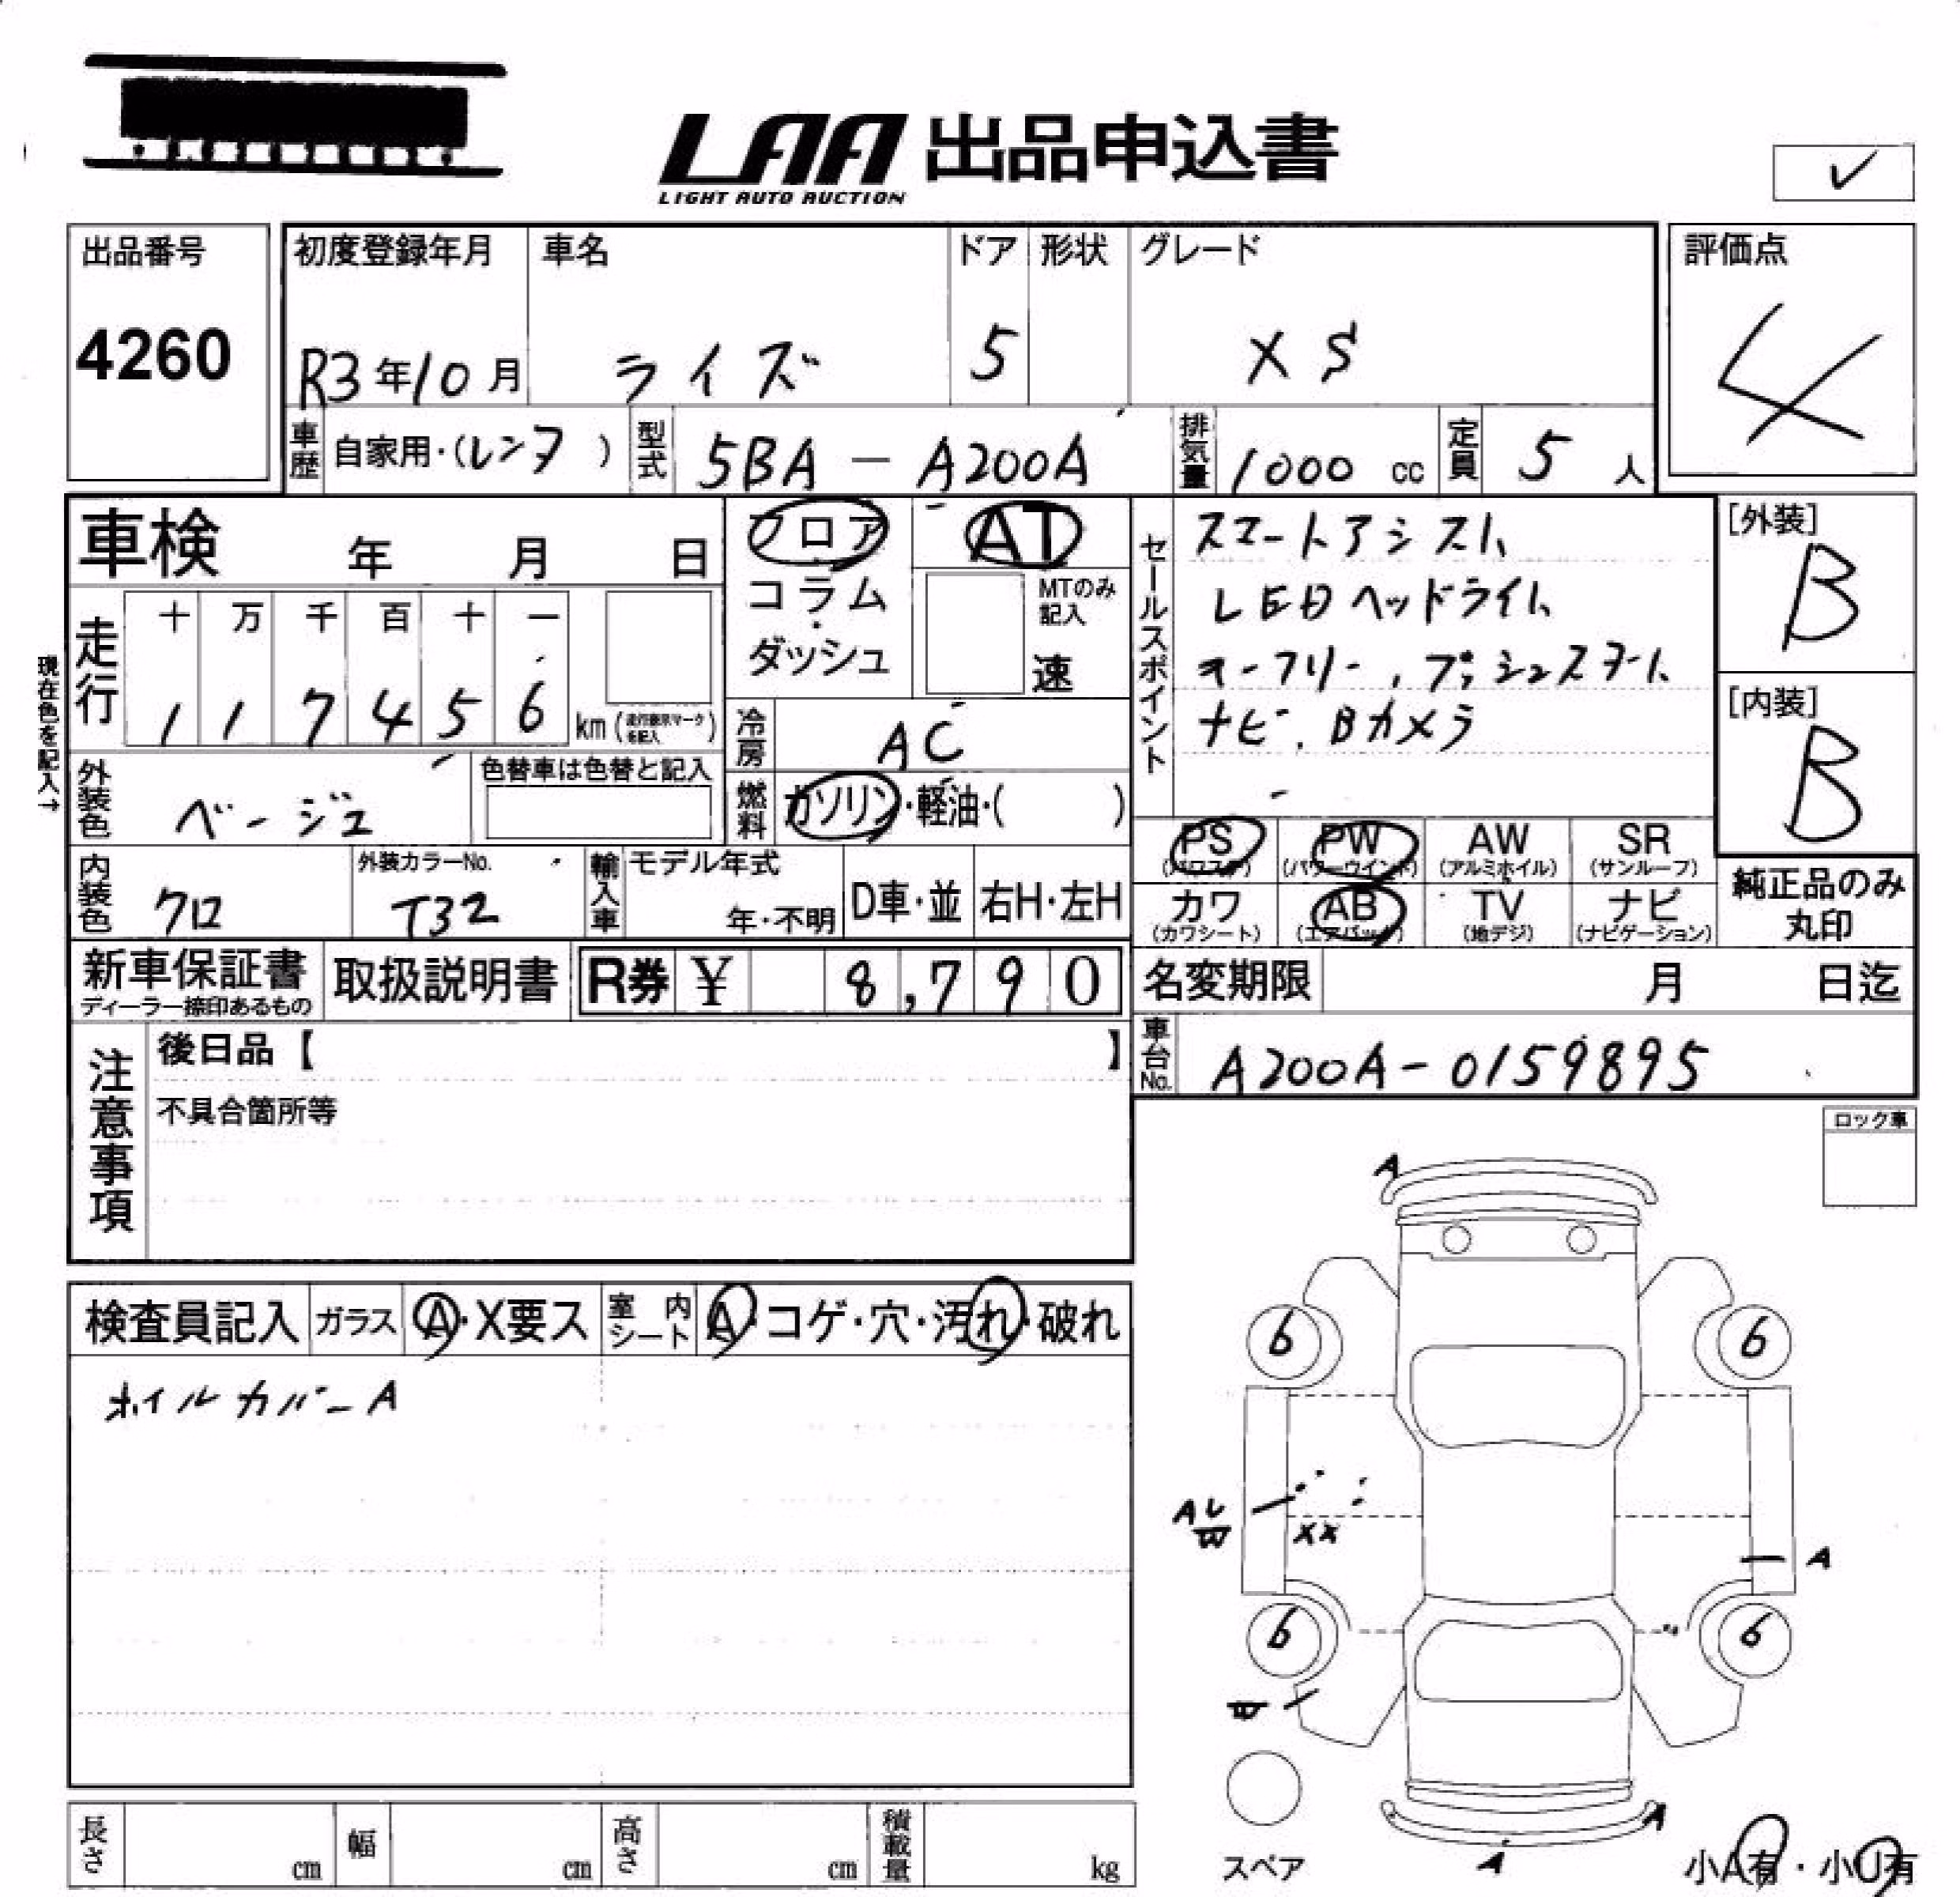 LAA 出品申込書
LIGHT AUTO AUCTION
✓
出品番号
4260
初度登録年月
R3年10月
車名
ライズ
ドア
5
形状
グレード
XS
評価点
4
車歴 自家用・(レンタ )
型式 5BA-A200A
排気量 1000 cc
定員 5 人
車検 年 月 日
フロア・コラム・ダッシュ
AT
MTのみ記入
速
セールスポイント
スマートアシスト
LEDヘッドライト
オーフリー, プッシュスタート
ナビ, Bカメラ
[外装]
B
[内装]
B
現在色を記入→
走行
十 万 千 百 十 一
1 1 7 4 5 6 km (走行表示マークを記入)
冷房 AC
外装色 ベージュ
色替車は色替と記入
燃料 ガソリン・軽油・( )
内装色 クロ
外装カラーNo.
T32
輸入車 モデル年式
年・不明
D車・並
右H・左H
PS (パワステ)
PW (パワーウインド)
AW (アルミホイル)
SR (サンルーフ)
カワ (カワシート)
AB (エアバック)
TV (地デジ)
ナビ (ナビゲーション)
純正品のみ
丸印
新車保証書
ディーラー捺印あるもの
取扱説明書
R券 ¥ 8,790
名変期限 月 日迄
車台No. A200A-0159895
注意事項
後日品【 】
不具合箇所等
ロック車
検査員記入
ガラス A・X要ス
室内シート A・コゲ・穴・汚れ・破れ
ホイルカバーA
A
6 6
AU
W
XX
A
6 6
A
A
スペア
小A有・小U有
長さ cm
幅 cm
高さ cm
積載量 kg